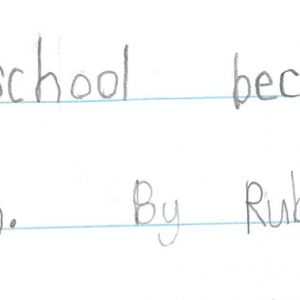 school bec
. By Rub